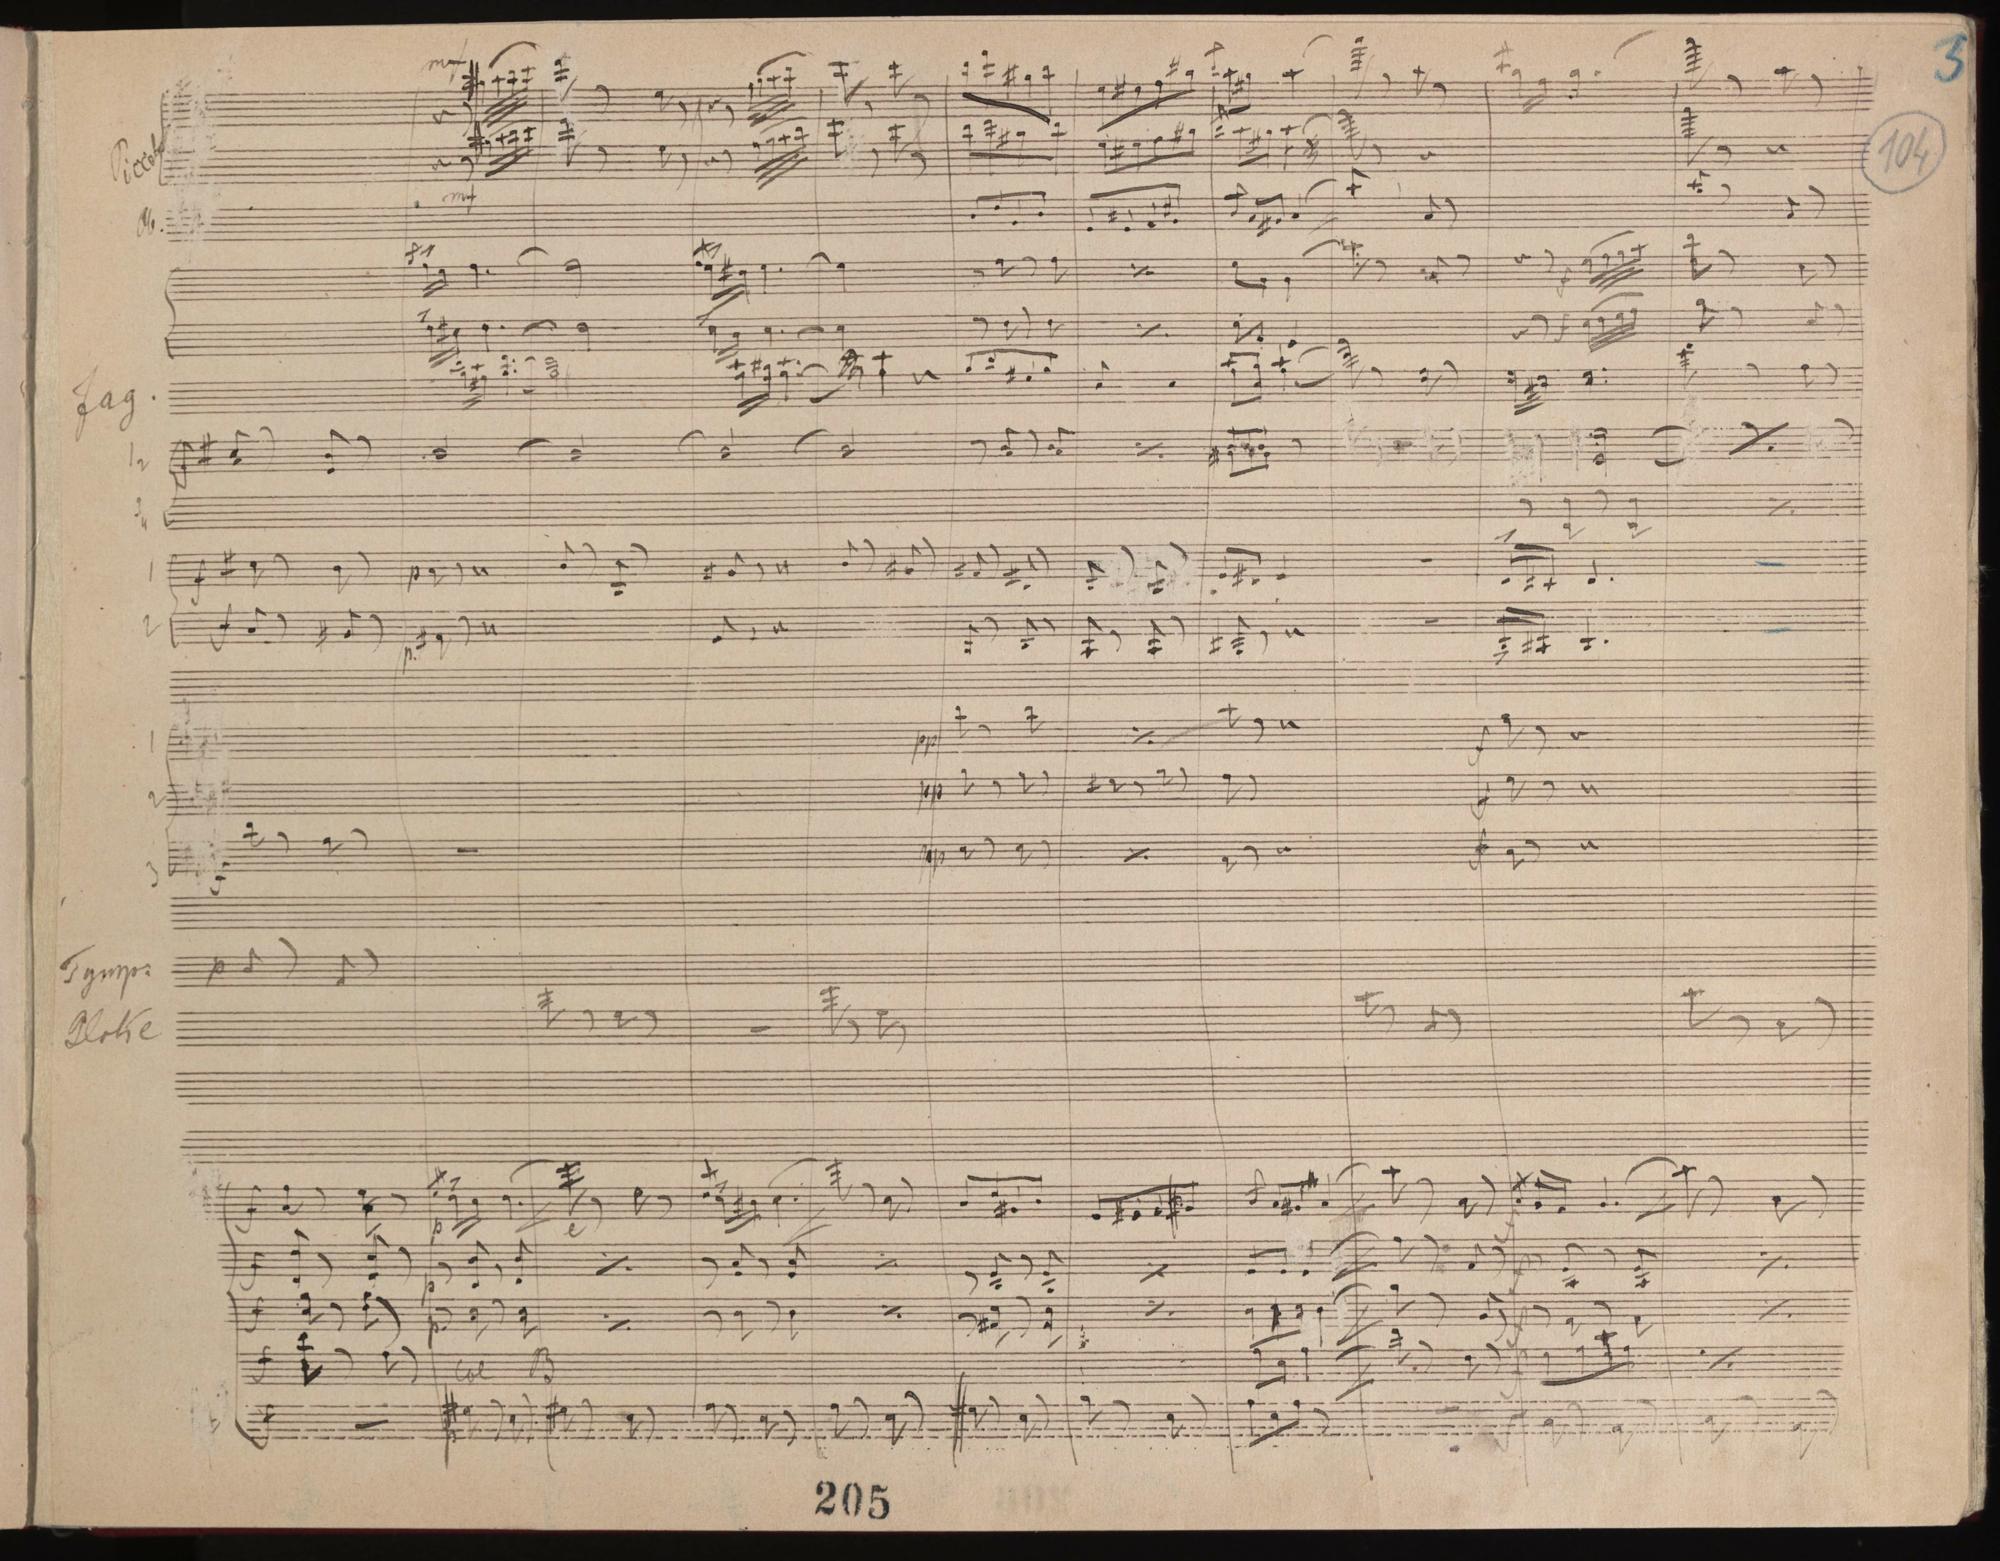 3
mf
Piccolo
104
mf
Ob.
Fag.
1
2
f
3
4
1
f
p
2
f
p.
1
pp
f
2
pp
f
3
f
ppp
f
Tymp:
p
Gloke
f
p
f
f
p
f
p.
f
col B
f
205